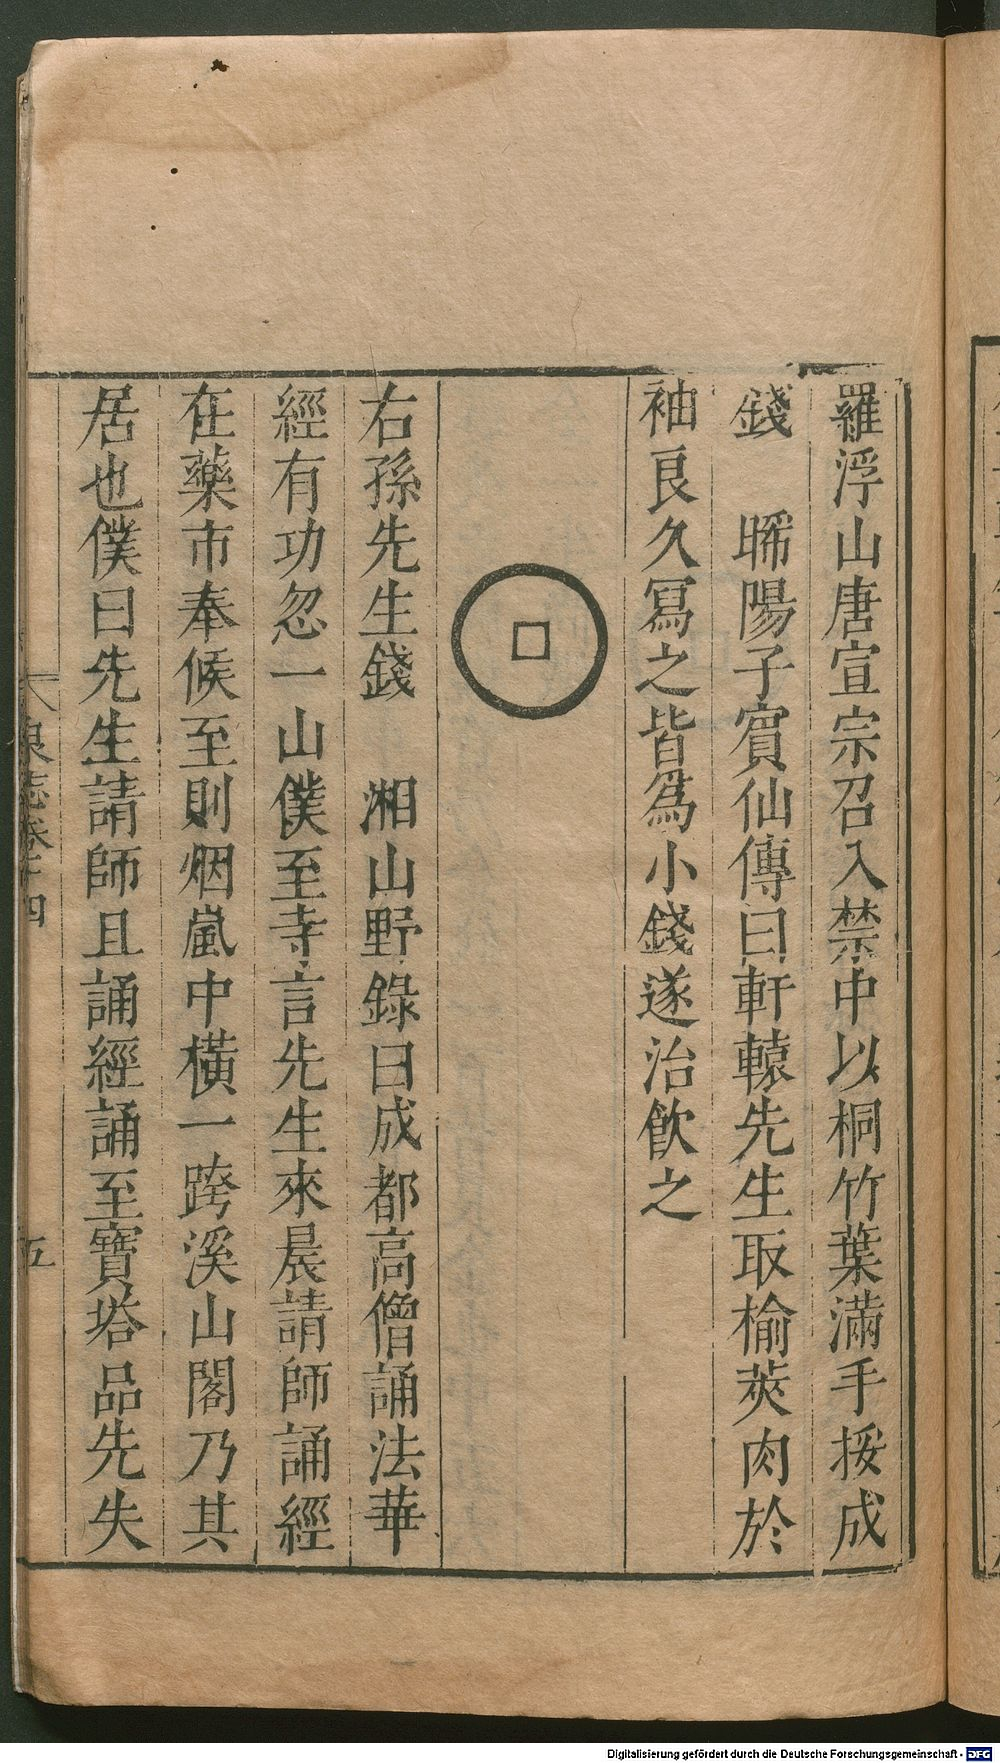 羅浮山唐宣宗召入禁中以桐竹葉滿手挼成
錢　睎陽子賔仙傳曰軒轅先生取榆莢肉於
袖良久冩之皆為小錢遂治飲之
右孫先生錢　湘山野錄曰成都高僧誦法華
經有功忽一山僕至寺言先生來晨請師誦經
在藥市奉候至則烟嵐中橫一跨溪山閣乃其
居也僕曰先生請師且誦經誦至寶塔品先失
泉志卷十四
五
Digitalisierung gefördert durch die Deutsche Forschungsgemeinschaft - DFG